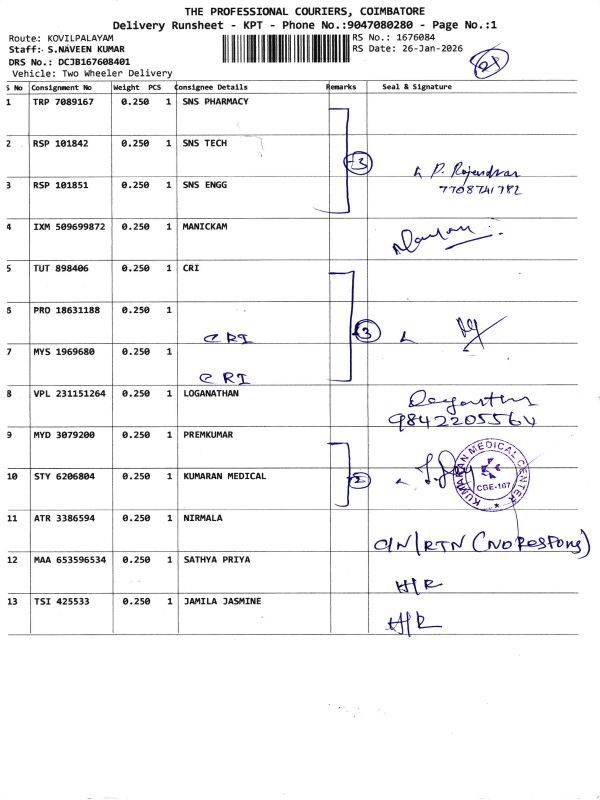 THE PROFESSIONAL COURIERS, COIMBATORE
Delivery Runsheet - KPT - Phone No.:9047080280 - Page No.:1
Route: KOVILPALAYAM RS No.: 1676084
Staff: S.NAVEEN KUMAR RS Date: 26-Jan-2026
DRS No.: DCJB167608401
Vehicle: Two Wheeler Delivery
S No Consignment No Weight PCS Consignee Details Remarks Seal & Signature
1 TRP 7089167 0.250 1 SNS PHARMACY
2 RSP 101842 0.250 1 SNS TECH
3
P. Rajendran
7708741782
3 RSP 101851 0.250 1 SNS ENGG
4 IXM 509699872 0.250 1 MANICKAM
5 TUT 898406 0.250 1 CRI
6 PRO 18631188 0.250 1 CRI
3
7 MYS 1969680 0.250 1 CRI
8 VPL 231151264 0.250 1 LOGANATHAN
9 MYD 3079200 0.250 1 PREMKUMAR
10 STY 6206804 0.250 1 KUMARAN MEDICAL 2
KUMARAN MEDICAL CENTER
CBE-107
11 ATR 3386594 0.250 1 NIRMALA
12 MAA 653596534 0.250 1 SATHYA PRIYA H/R
13 TSI 425533 0.250 1 JAMILA JASMINE H/R